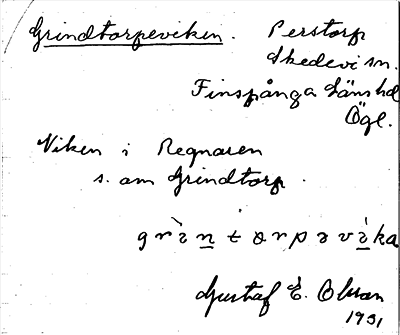 Grindtorpeviken. Perstorp
Skedevi sn.
Finspånga länshd
Ögl.
Viken i Regnaren
s. om Grindtorp.
grìntorpəvìka
Gustaf E. Olsson
1931